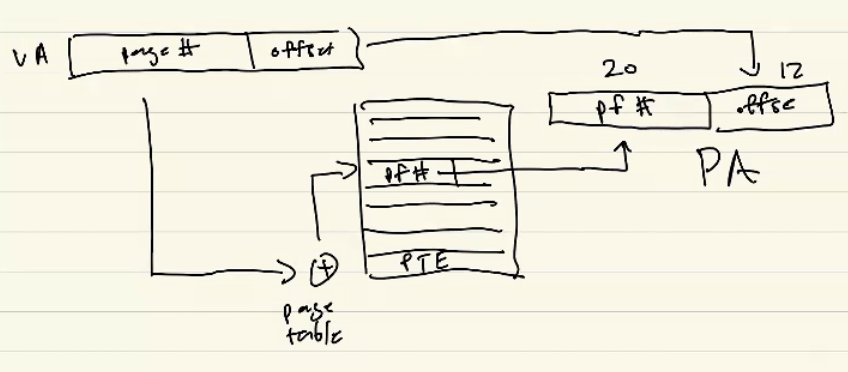 VA page # offset
20 12
pf # offse
PA
pf #
PTE
page
table